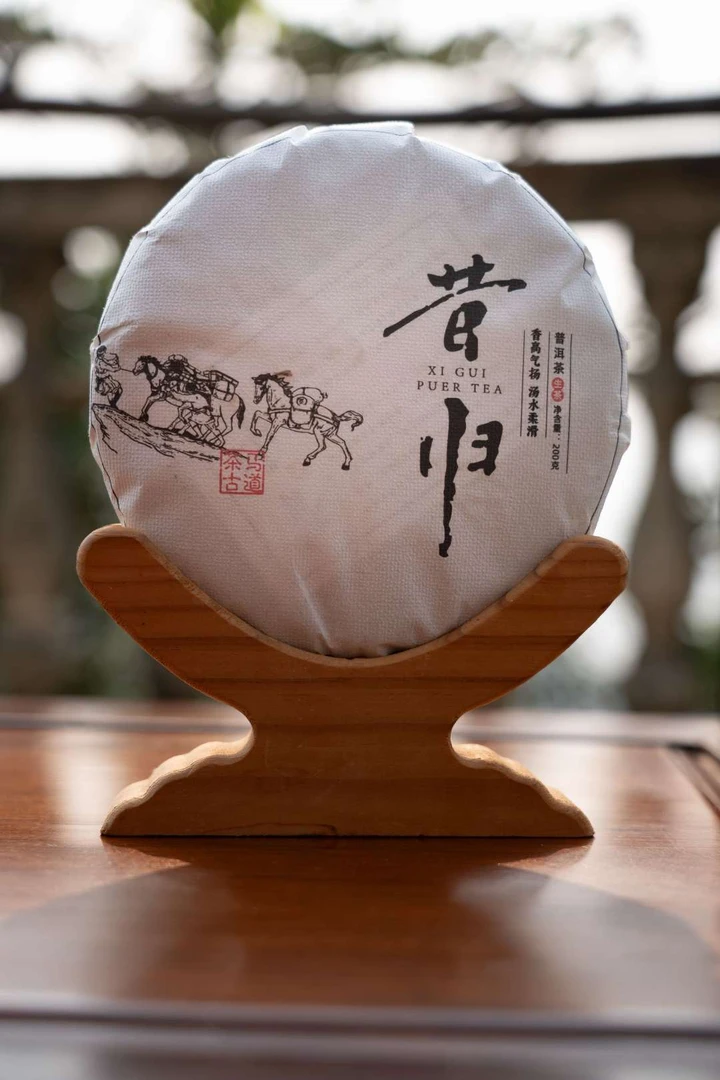 昔归
XI GUI
PUER TEA
普洱茶 生茶 净含量：200克
香高气扬 汤水柔滑
茶马
古道